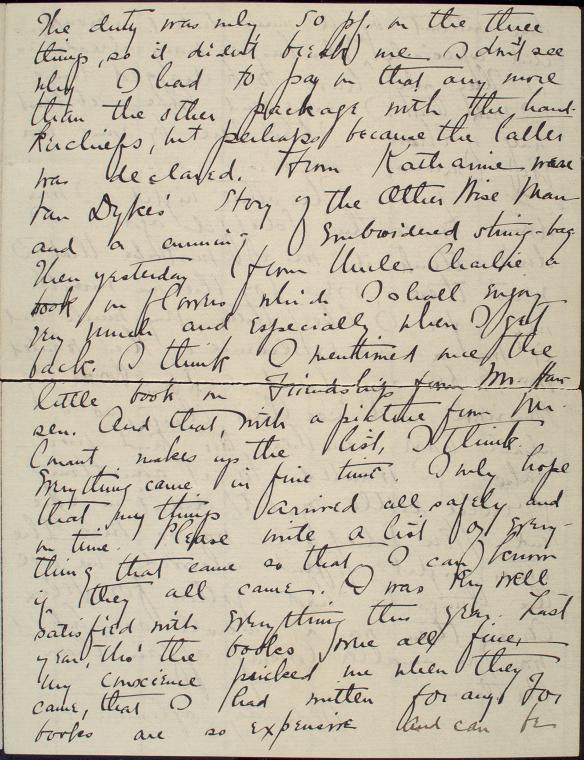 The duty was only 50 pf. on the three
things, so it didn't break me. I don't see
why I had to pay on that any more
than the other package with the hand-
kerchiefs, but perhaps because the latter
was declared. From Katharine were
Van Dykes' Story of the Other Wise Man
and a cunning embroidered string-bag
Then yesterday from Uncle Charlie a
book on flowers which I shall enjoy
very much and especially when I get
back. I think I mentioned once the
little book on Friendship from Mr. Han-
sen. And that, with a picture from Mr.
Conant makes up the list, I think.
Everything came in fine time. I only hope
that my things arrived all safely and
on time. Please write a list of every-
thing that came so that I can know
if they all came. I was very well
satisfied with everything this year. Last
year, tho' the books were all fine,
my conscience pricked me when they
came, that I had written for any. For
books are so expensive and can be